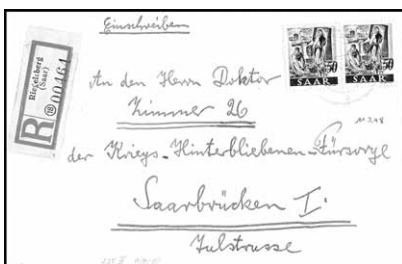 Einschreiben
Riegelsberg
(Saar)
R
00464
50
SAAR
50
SAAR
An den Herrn Doktor
Zimmer 26
der Kriegs-Hinterbliebenen-Fürsorge
Saarbrücken I.